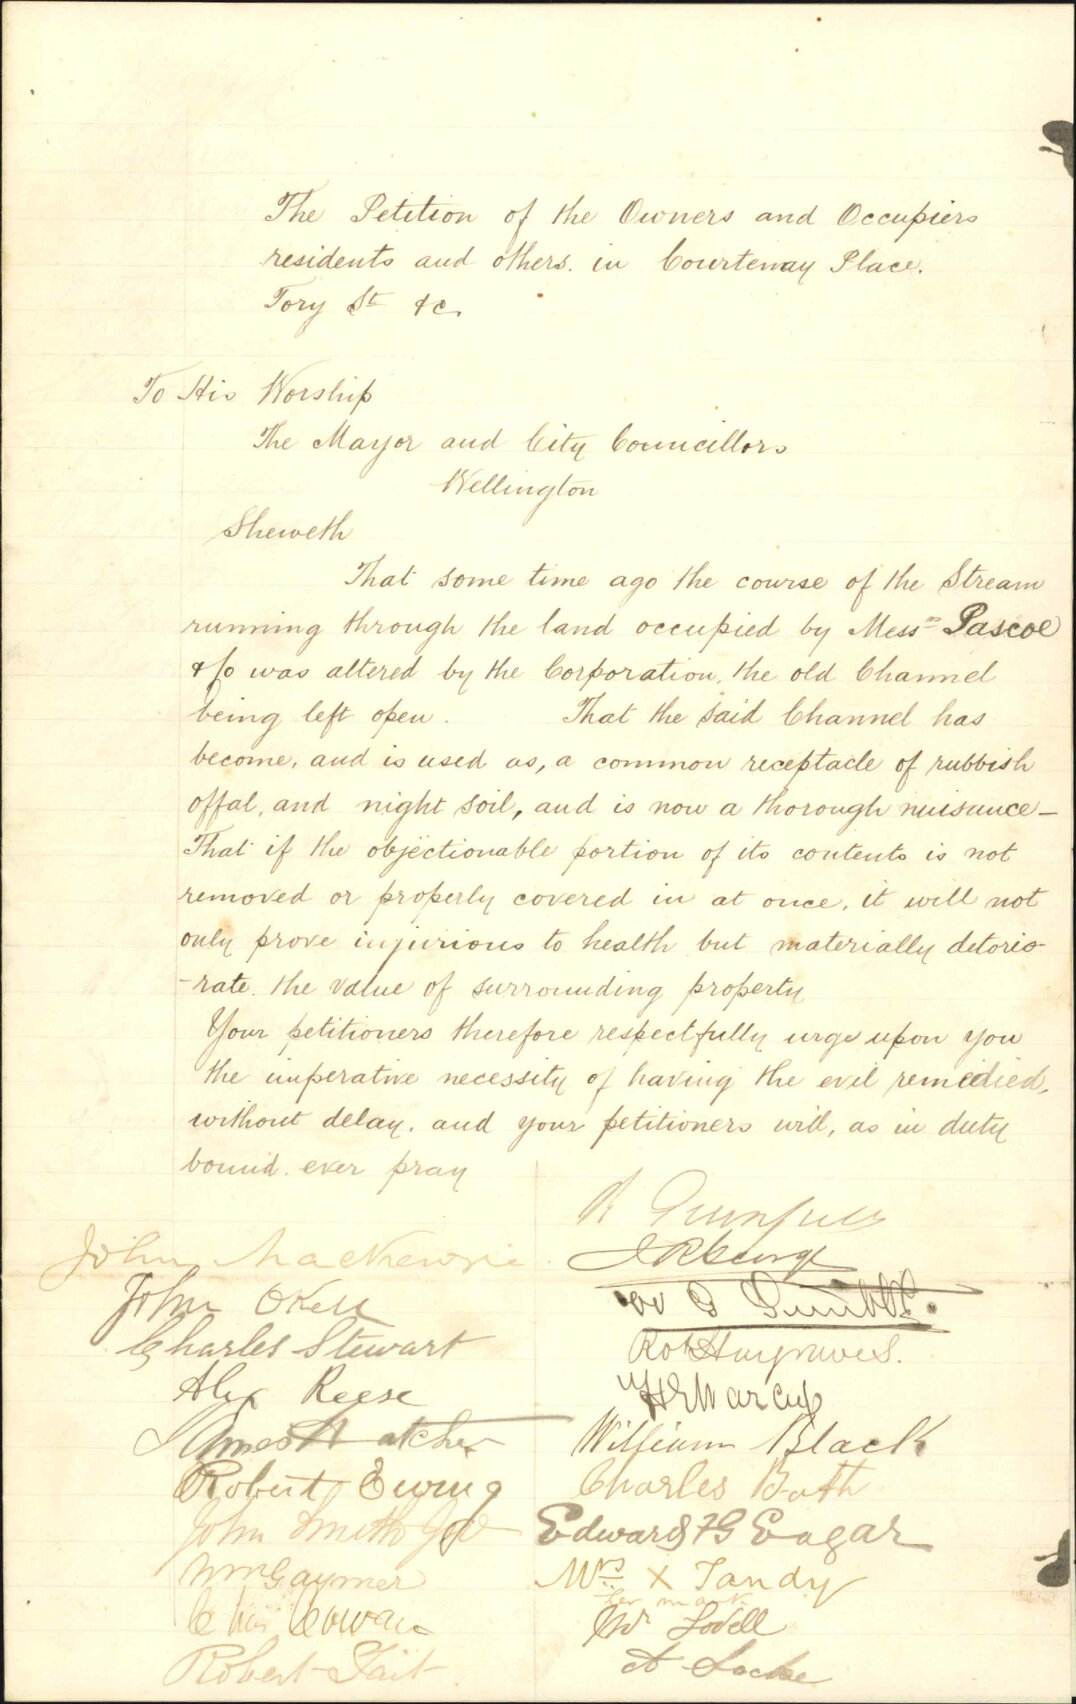 The Petition of the Owners and Occupiers
residents and others. in Courtenay Place.
Tory St &c.
To His Worship
The Mayor and City Councillors
Wellington
Sheweth
That some time ago the course of the Stream
running through the land occupied by Messrs Pascoe
& Co was altered by the Corporation, the old Channel
being left open. That the said Channel has
become, and is used as, a common receptacle of rubbish
offal, and night soil, and is now a thorough nuisance—
That if the objectionable portion of its contents is not
removed or properly covered in at once, it will not
only prove injurious to health but materially detorio-
-rate the value of surrounding property
Your petitioners therefore respectfully urge upon you
the imperative necessity of having the evil remedied,
without delay. and your petitioners will, as in duty
bound. ever pray
R
John MacKenzie
J R George
John Okell
Charles Stewart
Robt Hargraves.
Alex Reese
James Hatcher
William Black
Robert Ewing
Charles Bath
John Smith
Edward F G Eagar
Wm Gaymer
Mrs X Tandy
her mark
Chas Cowan
Lovell
Robert Tait
A Locke